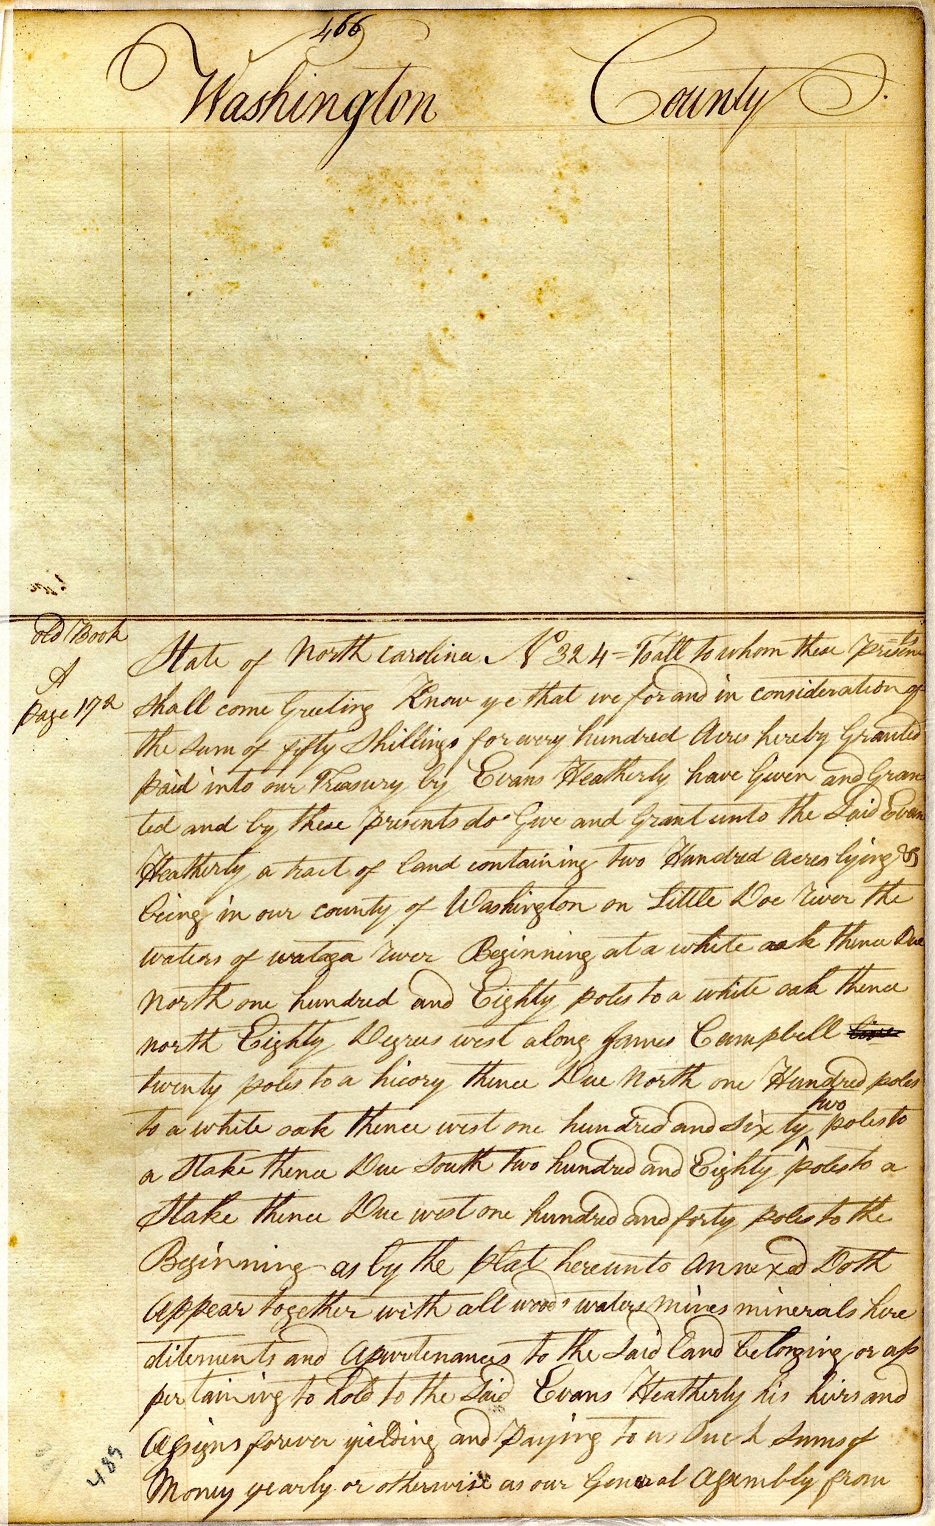 466
Washington County
old Book
A
page 172
State of North Carolina No 324 = To all to whom these Presents
shall come Greeting Know ye that we for and in consideration of
the sum of fifty Shillings for every hundred Acres hereby Granted
paid into our Treasury by Evans Heatherly have Given and Gran
ted and by these Presents do Give and Grant unto the Said Evans
Heatherly a tract of land containing two Hundred acres lying &
being in our county of Washington on Little Doe River the
waters of wataga River Beginning at a white oak thence Due
North one hundred and Eighty poles to a white oak thence
north Eighty Degrees west along James Campbell line
twenty poles to a hicory thence Due North one Hundred poles
to a white oak thence west one hundred and Sixty two poles to
a Stake thence Due South two hundred and Eighty poles to a
Stake thence Due west one hundred and forty poles to the
Beginning as by the plat hereunto annexed Doth
appear together with all woods waters mines minerals here
ditements and apurtenances to the Said land belonging or ap
pertaining to hold to the Said Evans Heatherly his heirs and
assigns forever yielding and Paying to us Such Sums of
Money yearly or otherwise as our General Assembly from
485